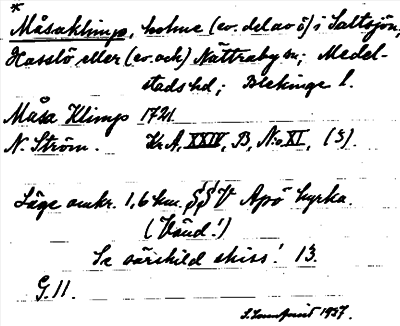 *
Måsaklimp, holme (ev. del av ö) i Saltsjön,
Hasslö eller (ev. och) Nättraby sn; Medel-
stads hd; Blekinge l.
Måsa Klimp 1721.
N. Ström. Kr.A, XXIV, B, N:o XI, (3).
Läge omkr. 1,6 km. SSV Aspö kyrka.
(Vänd!)
Se särskild skiss! 13.
G. 11.
1937.